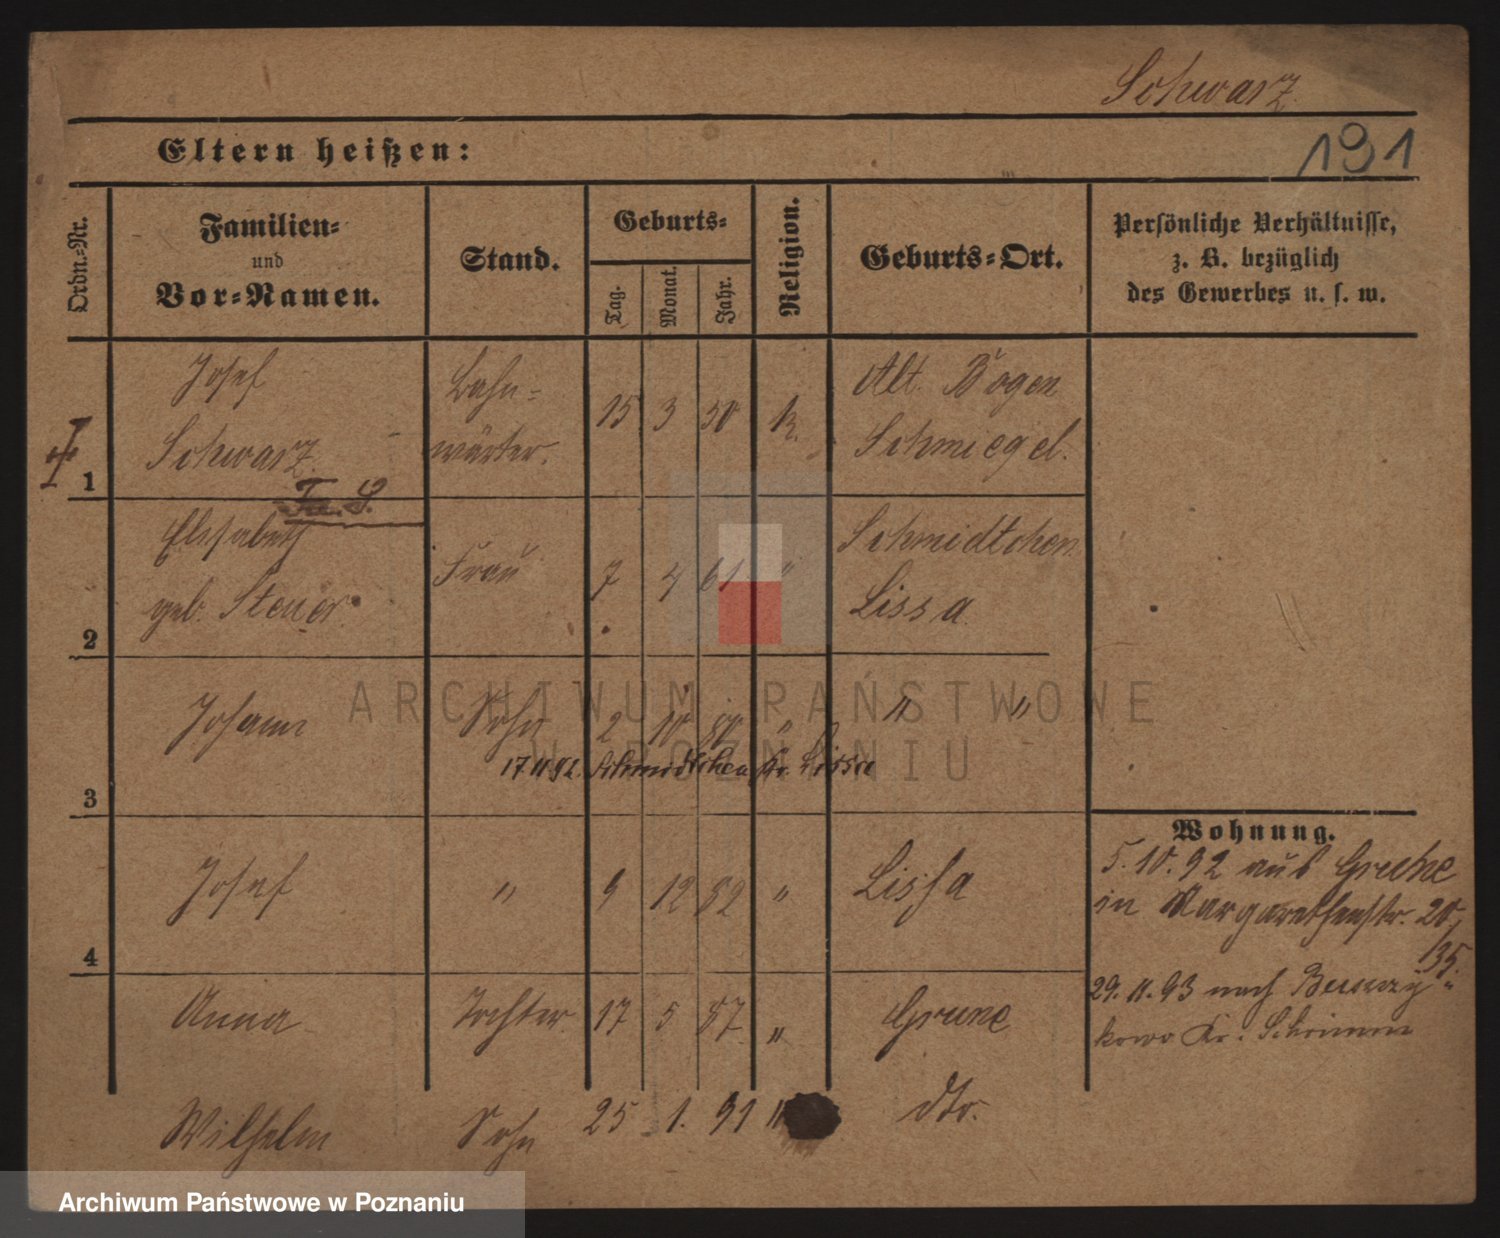 Schwarz
Eltern heißen:
191
Ordn.-Nr.
Familien-
und
Vor-Namen.
Stand.
Geburts-
Tag.
Monat.
Jahr.
Religion.
Geburts-Ort.
Persönliche Verhältnisse,
z. B. bezüglich
des Gewerbes u. s. w.
Josef
Schwarz
Bahn-
wärter.
15 3 50 k.
Alt Bogen
Schmiegel.
1
Elisabeth
geb. Steuer.
Frau
7 4 61 "
Schmidtchen
Lissa
2
Johann
Sohn
2 10 80 "
" "
17 11 92. Schmidtchen Kr. Lissa
3
Josef
"
9 12 82 "
Lissa
4
Anna
Tochter
17 5 87 "
Grune
Wilhelm
Sohn
25 1. 91 "
dto.
Wohnung.
5.10.92 aus Grune
in Margarethenstr. 20,
35.
29.11.93 nach
kowo Kr. Schrimm
ARCHIWUM PAŃSTWOWE
W POZNANIU
Archiwum Państwowe w Poznaniu